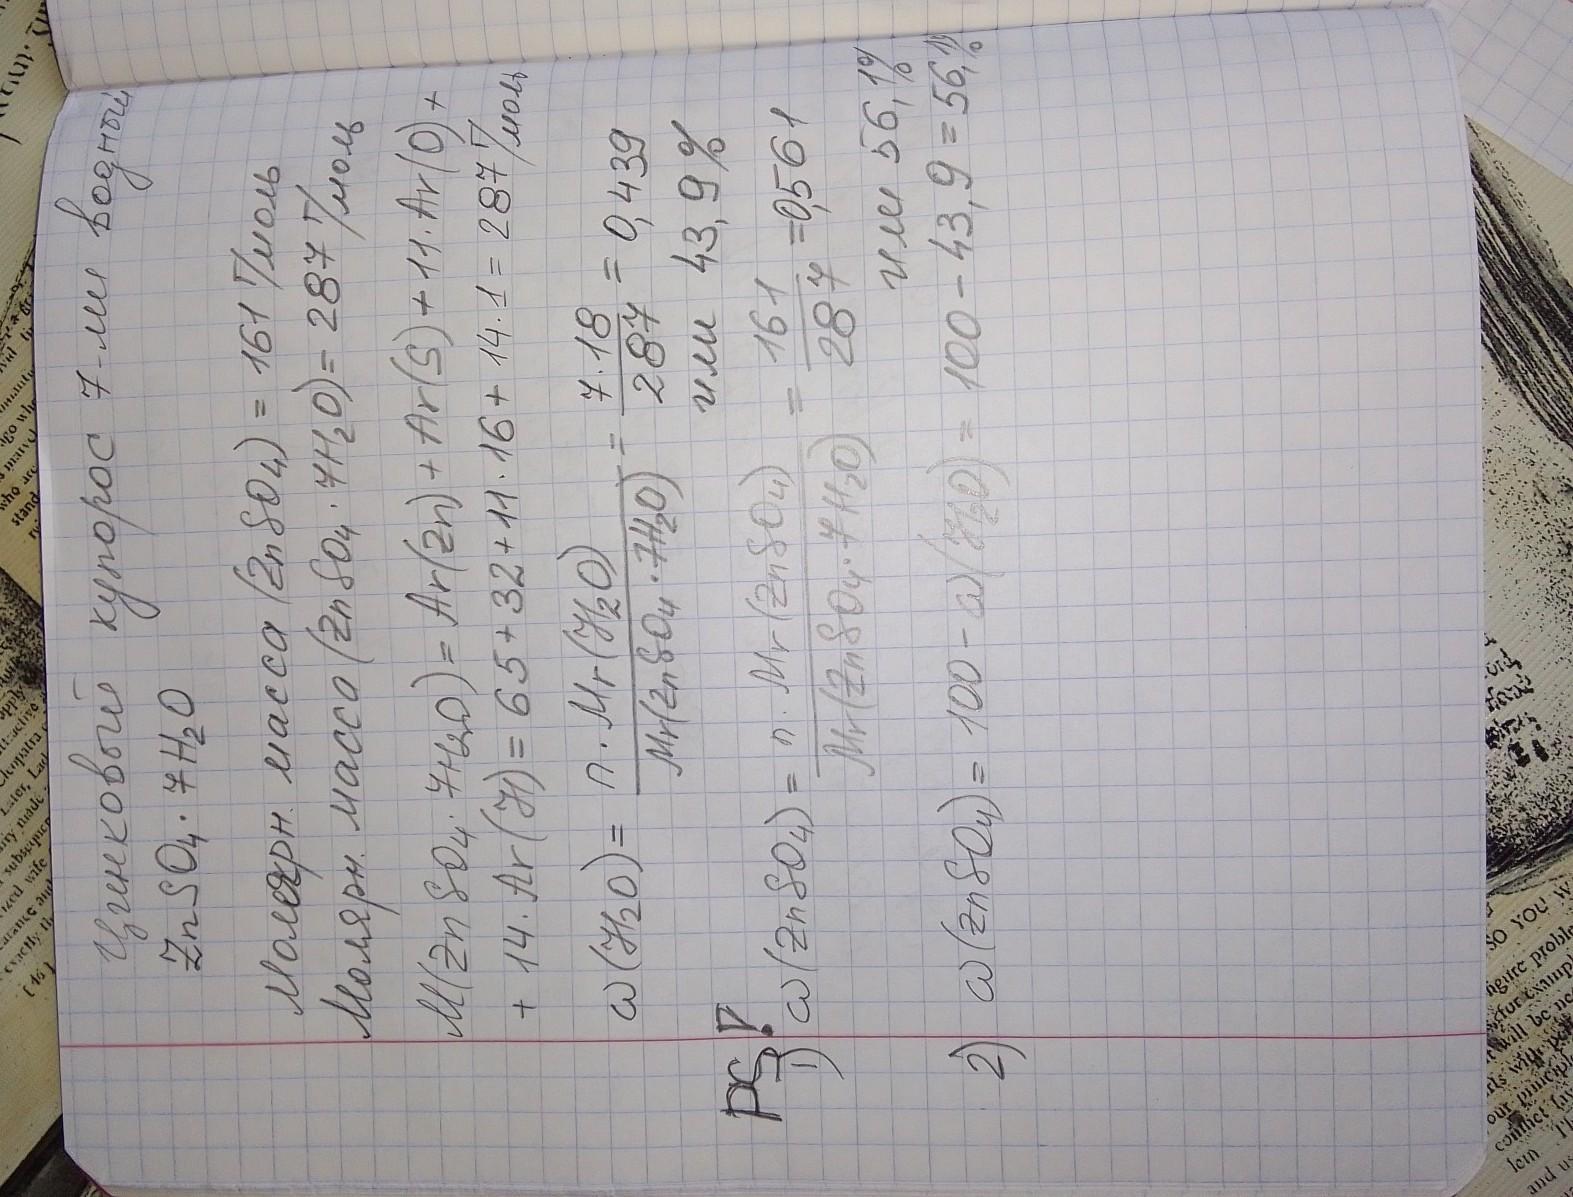 Цинковый купорос 7-ми водный
ZnSO₄·7H₂O
Молярн. масса (ZnSO₄) = 161 г/моль
Молярн. масса (ZnSO₄·7H₂O) = 287 г/моль
M(ZnSO₄·7H₂O) = Ar(Zn) + Ar(S) + 11·Ar(O) +
+ 14·Ar(H) = 65 + 32 + 11·16 + 14·1 = 287 г/моль
ω(H₂O) = n·Mr(H₂O) / Mr(ZnSO₄·7H₂O) = 7·18 / 287 = 0,439
или 43,9%
PS!
1) ω(ZnSO₄) = n·Mr(ZnSO₄) / Mr(ZnSO₄·7H₂O) = 161 / 287 = 0,561
или 56,1%
2) ω(ZnSO₄) = 100 - ω(H₂O) = 100 - 43,9 = 56,1%
[46]
SO YOU W